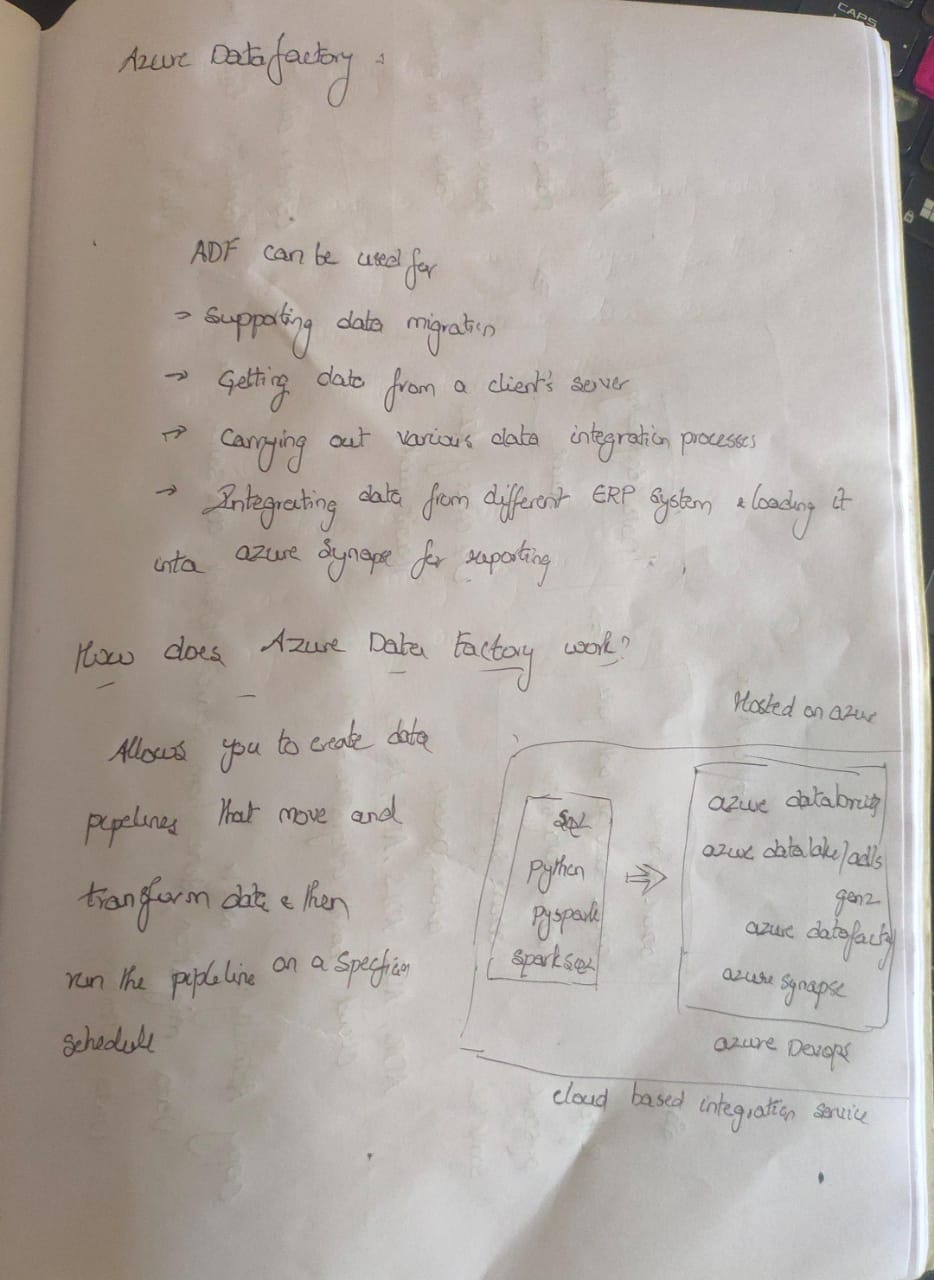 Azure Datafactory :
ADF can be used for
→ Supporting data migration
→ Getting data from a client's server
→ Carrying out various data integration processes
→ Integrating data from different ERP System & loading it
into azure Synapse for reporting
How does Azure Data Factory work?
Allows you to create data
pipelines that move and
transform data & then
run the pipleline on a Specific
schedule
Hosted on azure
SQL
Python
Pyspark
Spark SQL
⇒
azure databricks
azure datalake/adls
gen2
azure datafactory
azure synapse
azure Devops
cloud based integration service
CAPS